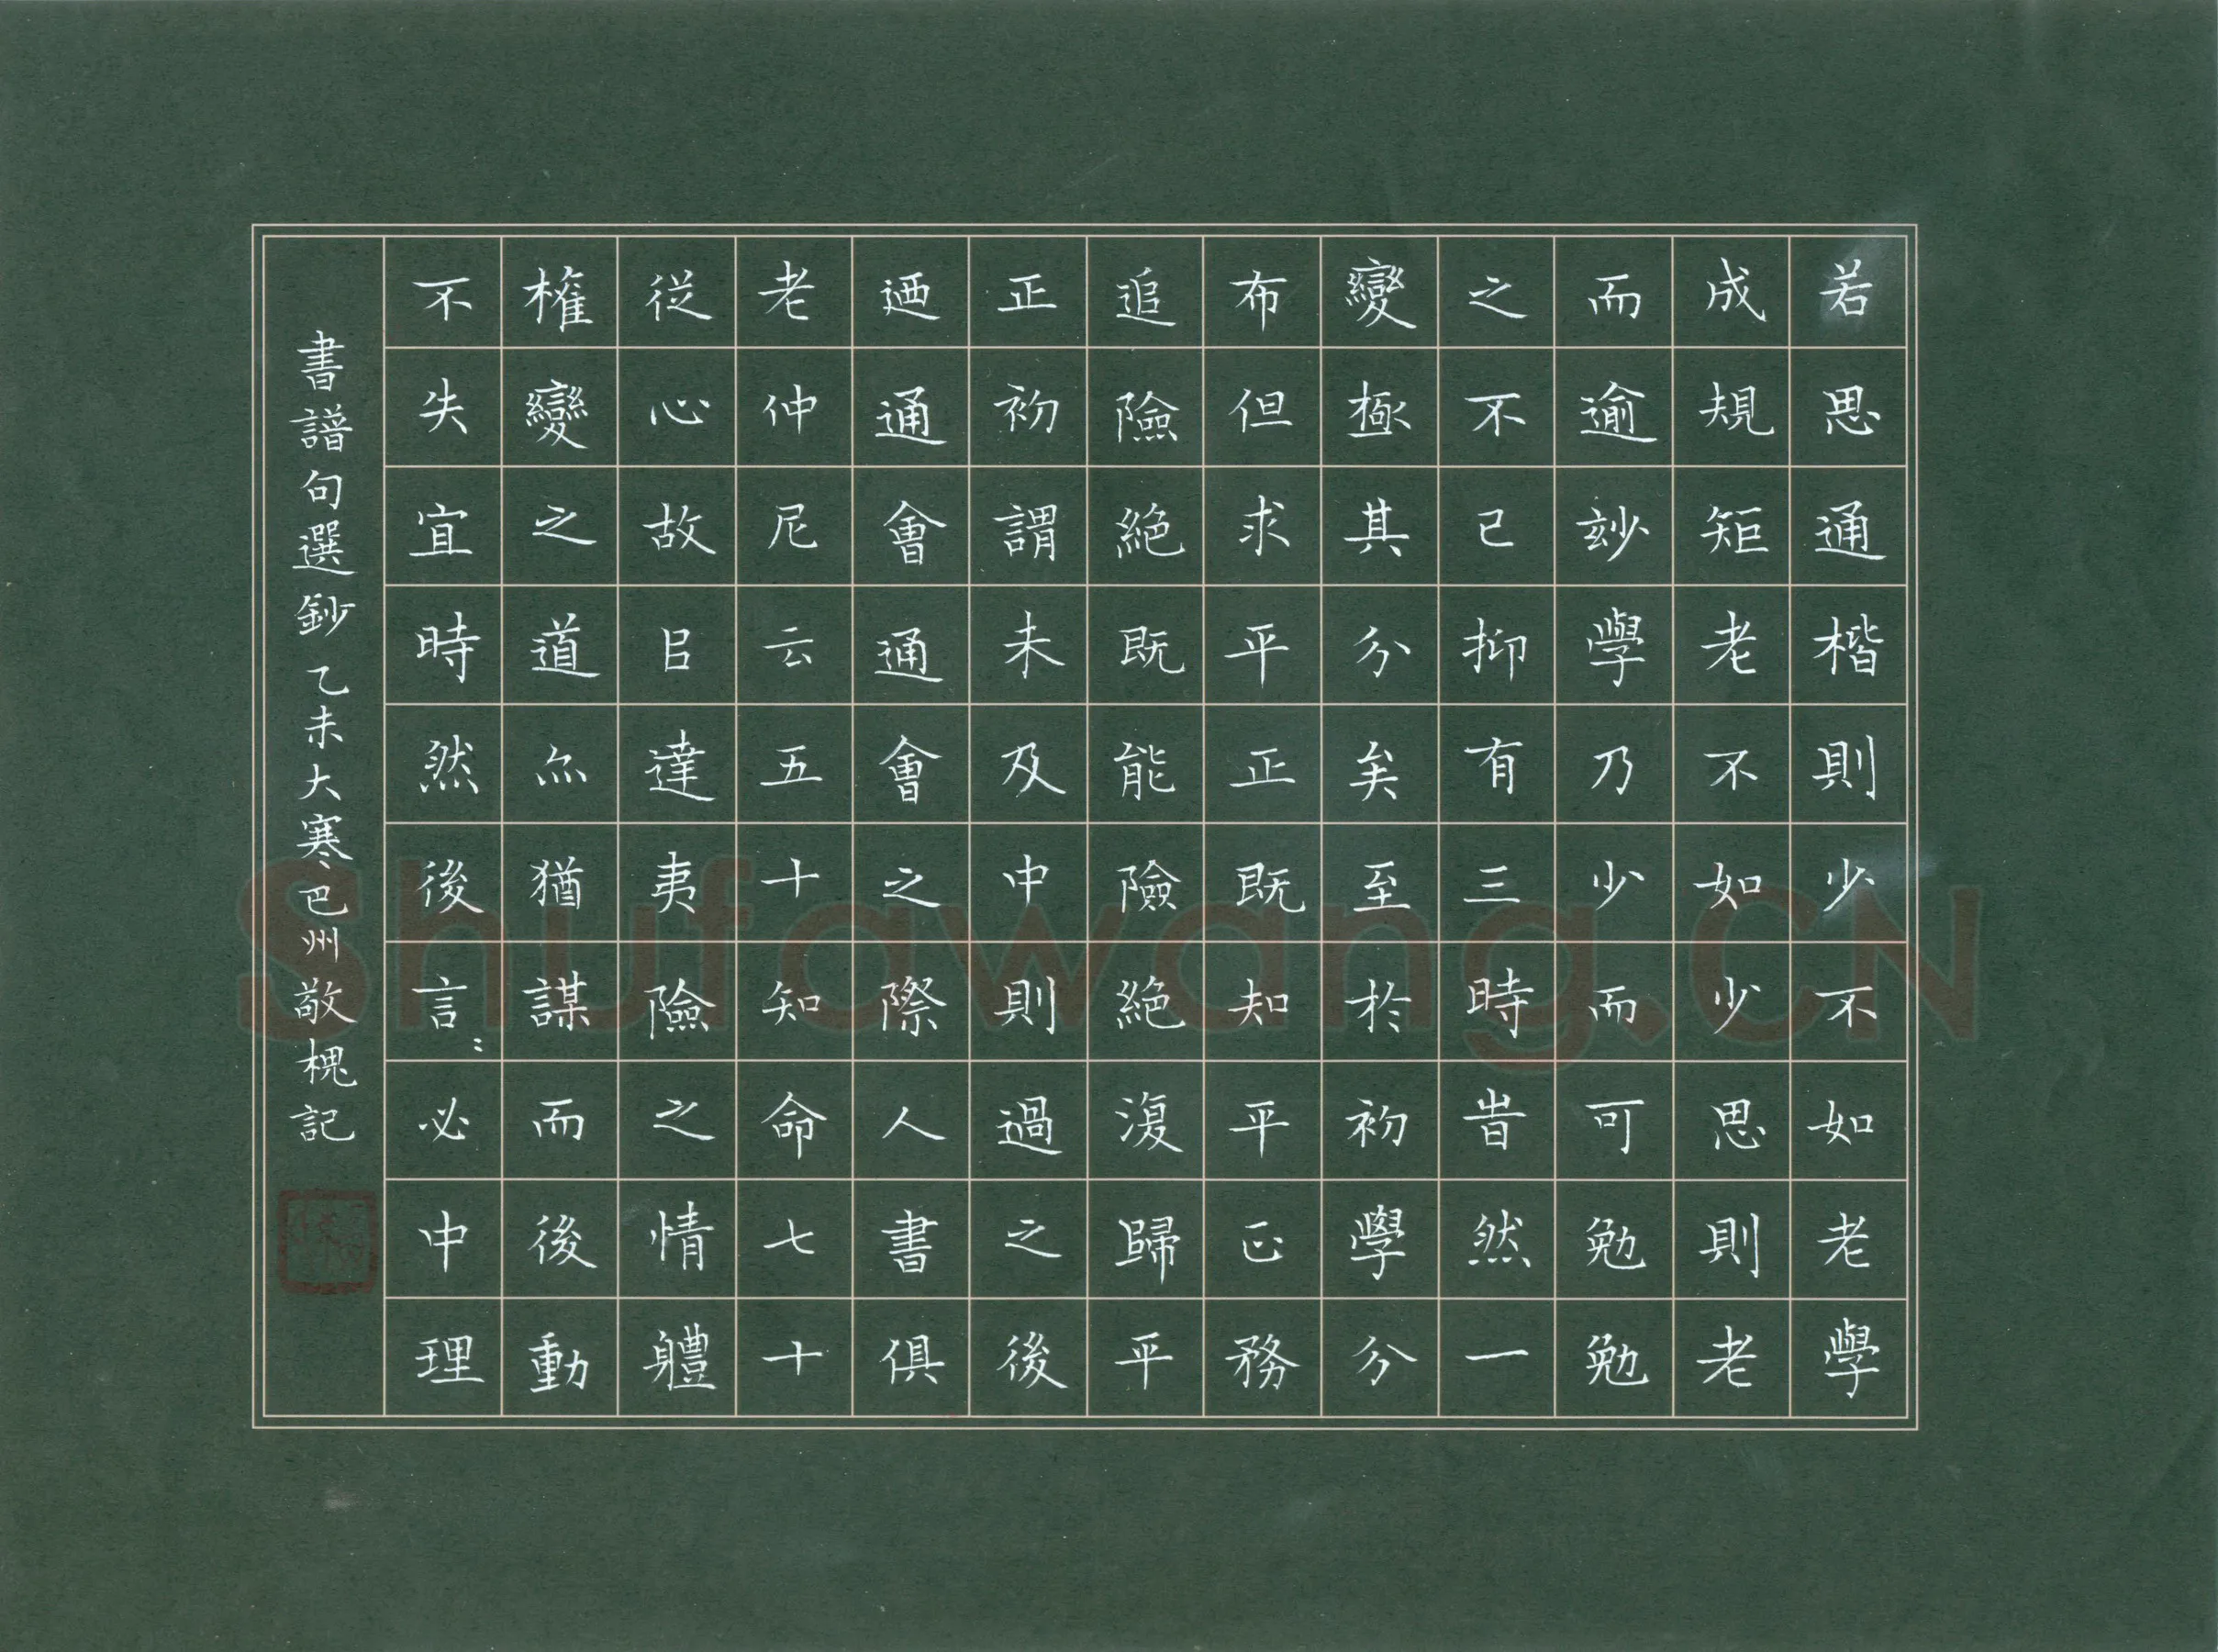 若思通楷則少不如老學
成規矩老不如少思則老
而逾玅學乃少而可勉勉
之不已抑有三時旹然一
變極其分矣至於初學分
布但求平正既知平正務
追險絕既能險絕復歸平
正初謂未及中則過之後
迺通會通會之際人書俱
老仲尼云五十知命七十
從心故㠯達夷險之情軆
權變之道亦猶謀而後動
不失宜時然後言〻必中理
書譜句選鈔乙未大寒巴州敬槐記
Shufawang.CN